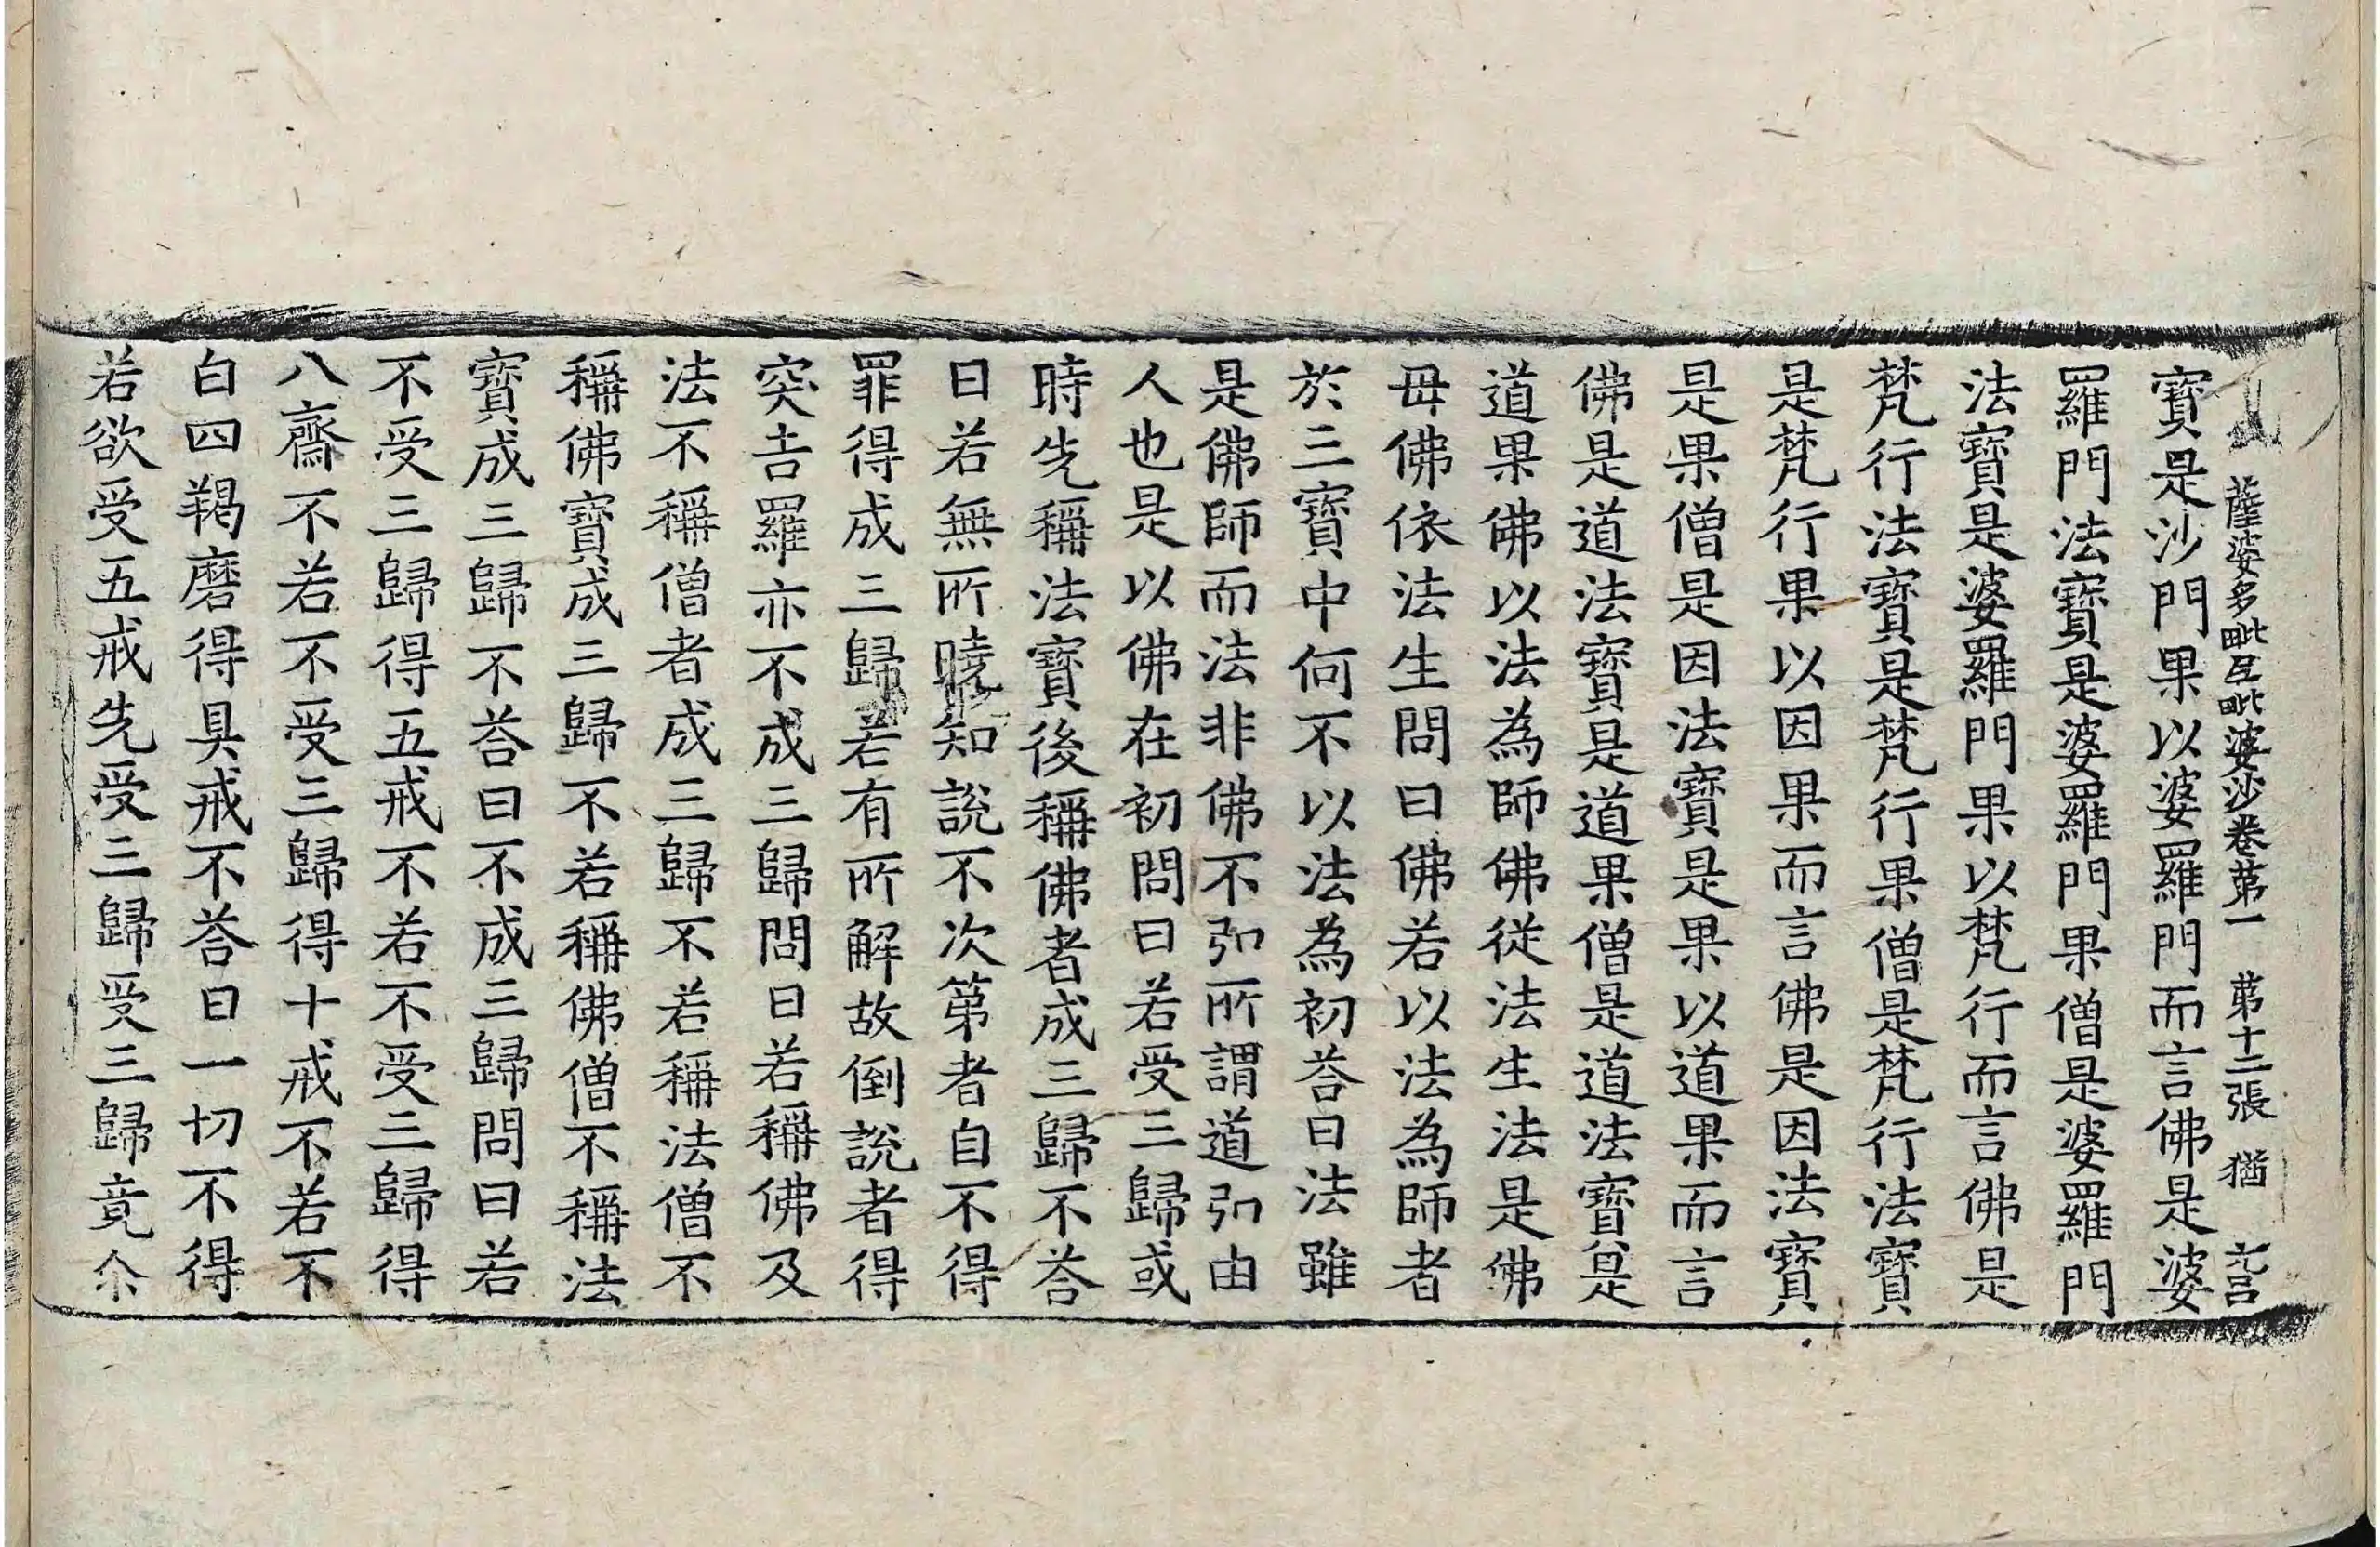 薩婆多毗尼毗婆沙卷苐一　苐十二張　猶
寳是沙門果以婆羅門而言佛是婆
羅門法寳是婆羅門果僧是婆羅門
法寳是婆羅門果以梵行而言佛是
梵行法寳是梵行果僧是梵行法寳
是梵行果以因果而言佛是因法寳
是果僧是因法寳是果以道果而言
佛是道法寳是道果僧是道法寳是
道果佛以法為師佛從法生法是佛
母佛依法生問曰佛若以法為師者
於三寳中何不以法為初荅曰法雖
是佛師而法非佛不弘所謂道弘由
人也是以佛在初問曰若受三歸或
時先稱法寳後稱佛者成三歸不荅
曰若無所曉知說不次第者自不得
罪得成三歸若有所解故倒說者得
突吉羅亦不成三歸問曰若稱佛及
法不稱僧者成三歸不若稱法僧不
稱佛寳成三歸不若稱佛僧不稱法
寳成三歸不荅曰不成三歸問曰若
不受三歸得五戒不若不受三歸得
八齋不若不受三歸得十戒不若不
白四羯磨得具戒不荅曰一切不得
若欲受五戒先受三歸受三歸竟尒